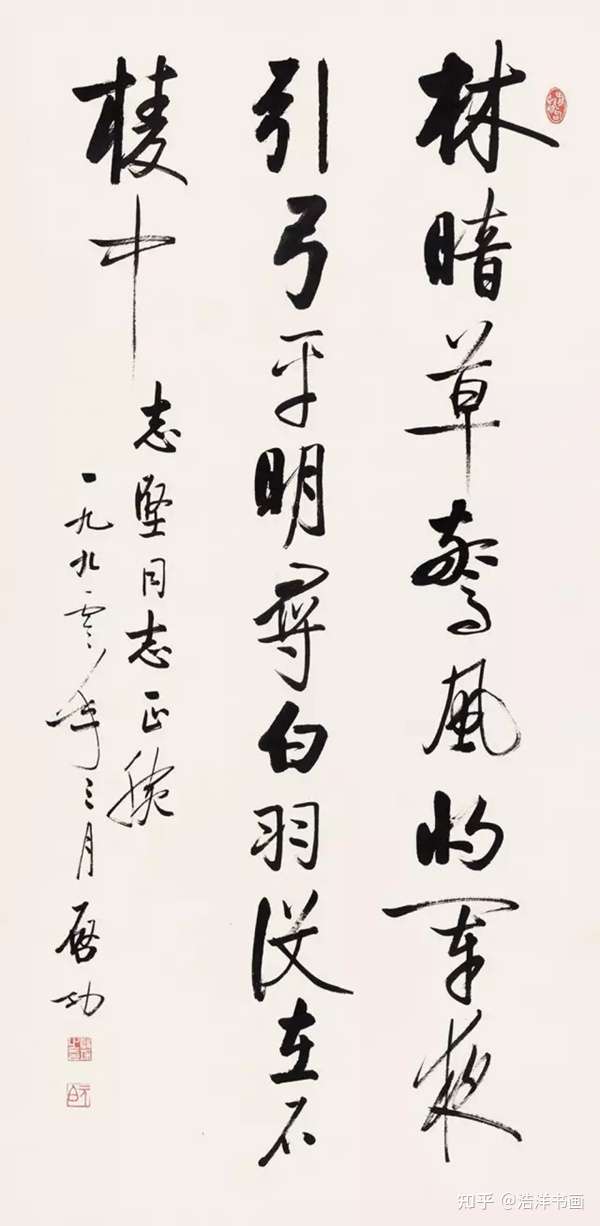 林暗草驚風將軍夜
引弓平明尋白羽没在石
棱中
志堅同志正腕
一九九零年三月啟功
知乎 @浩洋书画